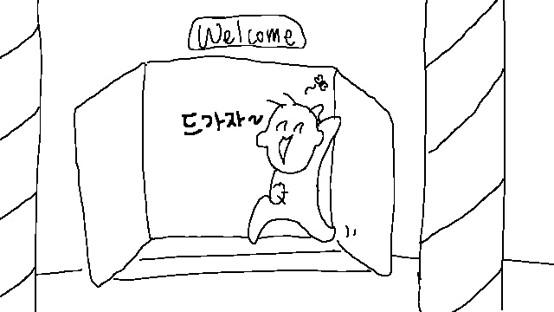 Welcome
드가자~